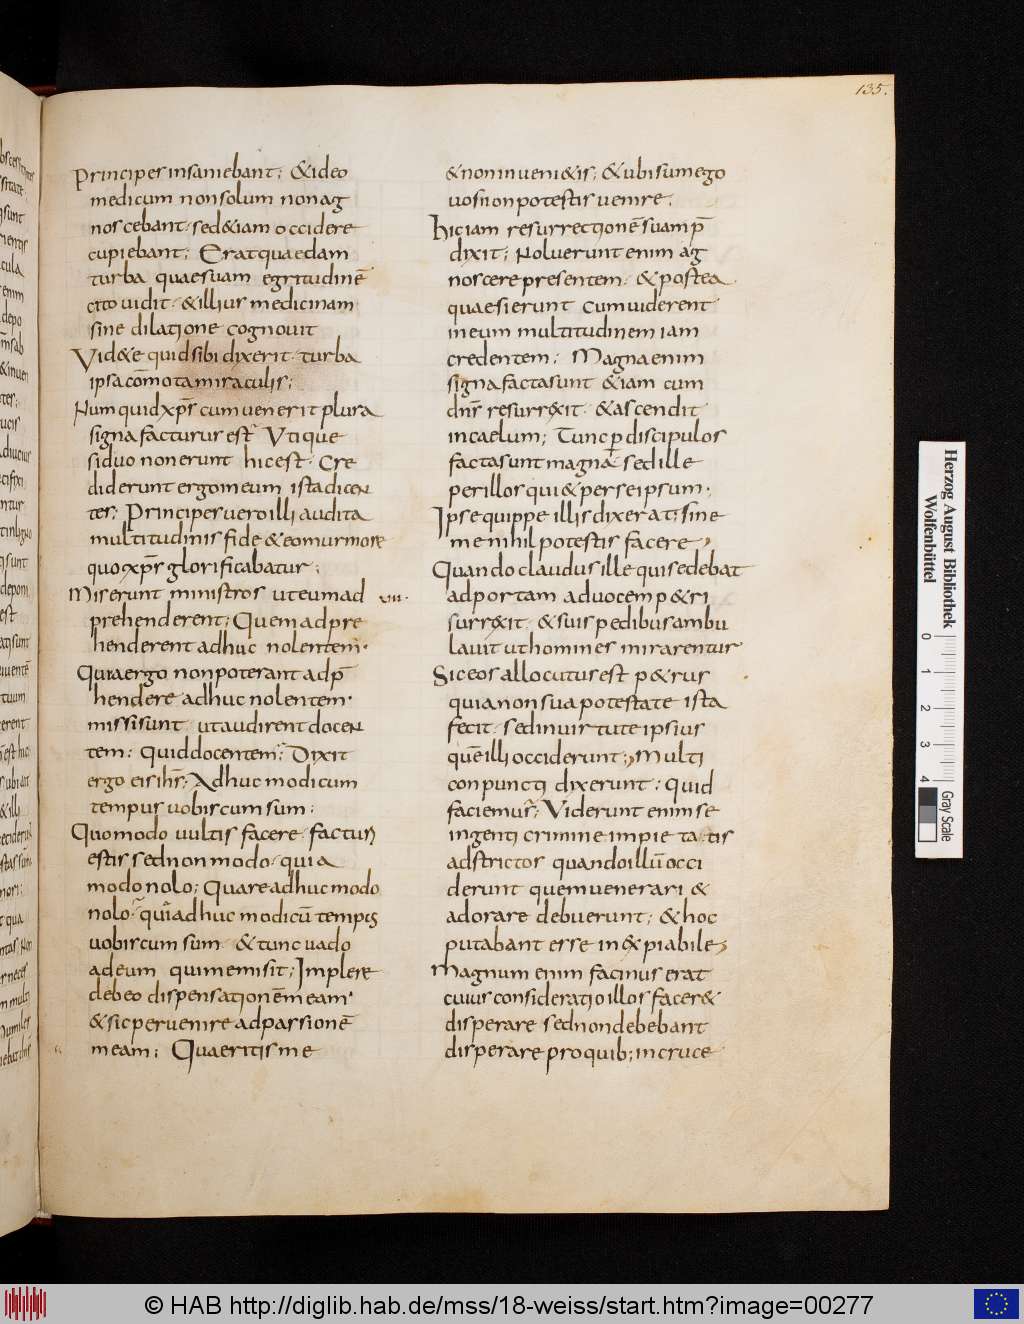 135.
Principes insaniebant; & ideo
medicum non solum non ag
noscebant. sed & iam occidere
cupiebant; Erat quaedam
turba quae suam egritudinē
cito uidit. & illius medicinam
sine dilatione cognouit
Vid&e quid sibi dixerit. turba
ipsa cōmota miraculis;
Numquid xp̄s cum uenerit plura
signa facturus est? Vtique
si duo non erunt hic est. Cre
diderunt ergo in eum ista dicen
tes; Principes uero illi audita
multitudinis fide & eo murmore
quo xp̄s glorificabatur;
Miserunt ministros ut eum ad xiii.
prehenderent; Quem adpre
henderent adhuc nolentem.
Quia ergo non poterant adp̄
hendere adhuc nolentem.
missi sunt. ut audirent docen
tem; Quid docentem? Dixit
ergo eis ih̄s; Adhuc modicum
tempus uobiscum sum;
Quomodo uultis facere. facturi
estis sed non modo. quia
modo nolo; Quare adhuc modo
nolo? quia adhuc modicū tempus
uobiscum sum. & tunc uado
ad eum qui me misit; Implere
debeo dispensationē meam.
& sic peruenire ad passionē
meam; Quaeritis me
& non inueni&is; & ubi sum ego
uos non potestis uenire.
Hic iam resurrectionē suam p̄
dixit; Noluerunt enim ag
noscere presentem. & postea
quaesierunt cum uiderent
in eum multitudinem iam
credentem; Magna enim
signa facta sunt & iam cum
dn̄s resurrexit. & ascendit
in caelum; Tunc p̱ discipulos
facta sunt magna. sed ille
per illos qui & per se ipsum.
Ipse quippe illis dixerat; sine
me nihil potestis facere;
Quando claudus ille qui sedebat
ad portam ad uocem p&ri
surrexit. & suis pedibus ambu
lauit ut homines mirarentur
Sic eos allocutus est p&rus
quia non sua potestate ista
fecit. sed in uirtute ipsius
quē illi occiderunt; Multi
conpuncti dixerunt; Quid
faciemus? Viderunt enim se
ingenti crimine impietatis
adstrictos quando illū occi
derunt quem uenerari &
adorare debuerunt; & hoc
putabant esse inexpiabile;
Magnum enim facinus erat
cuius consideratio illos facer&
disperare sed non debebant
disperare pro quib; in cruce
Herzog August Bibliothek
Wolfenbüttel
0 1 2 3 4
Gray Scale
© HAB http://diglib.hab.de/mss/18-weiss/start.htm?image=00277